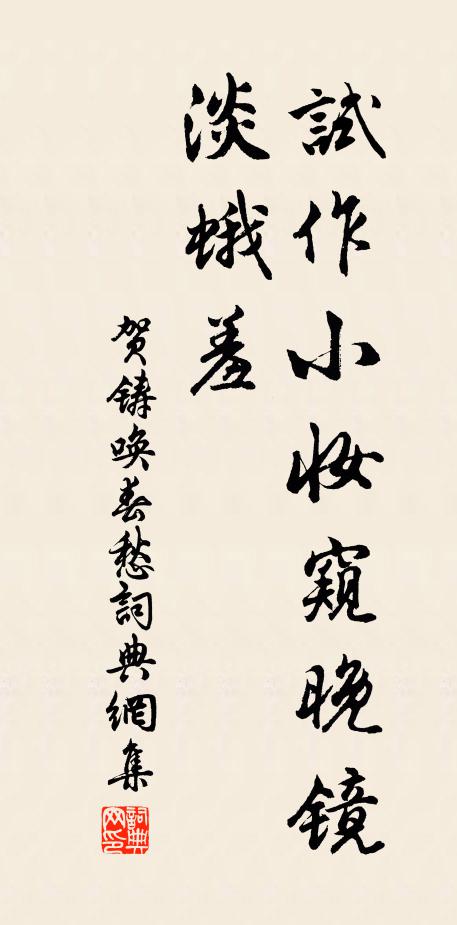 試作小妝窺晚镜
淡蛾羞
贺鑄唤春愁詞典網集
詞典網印